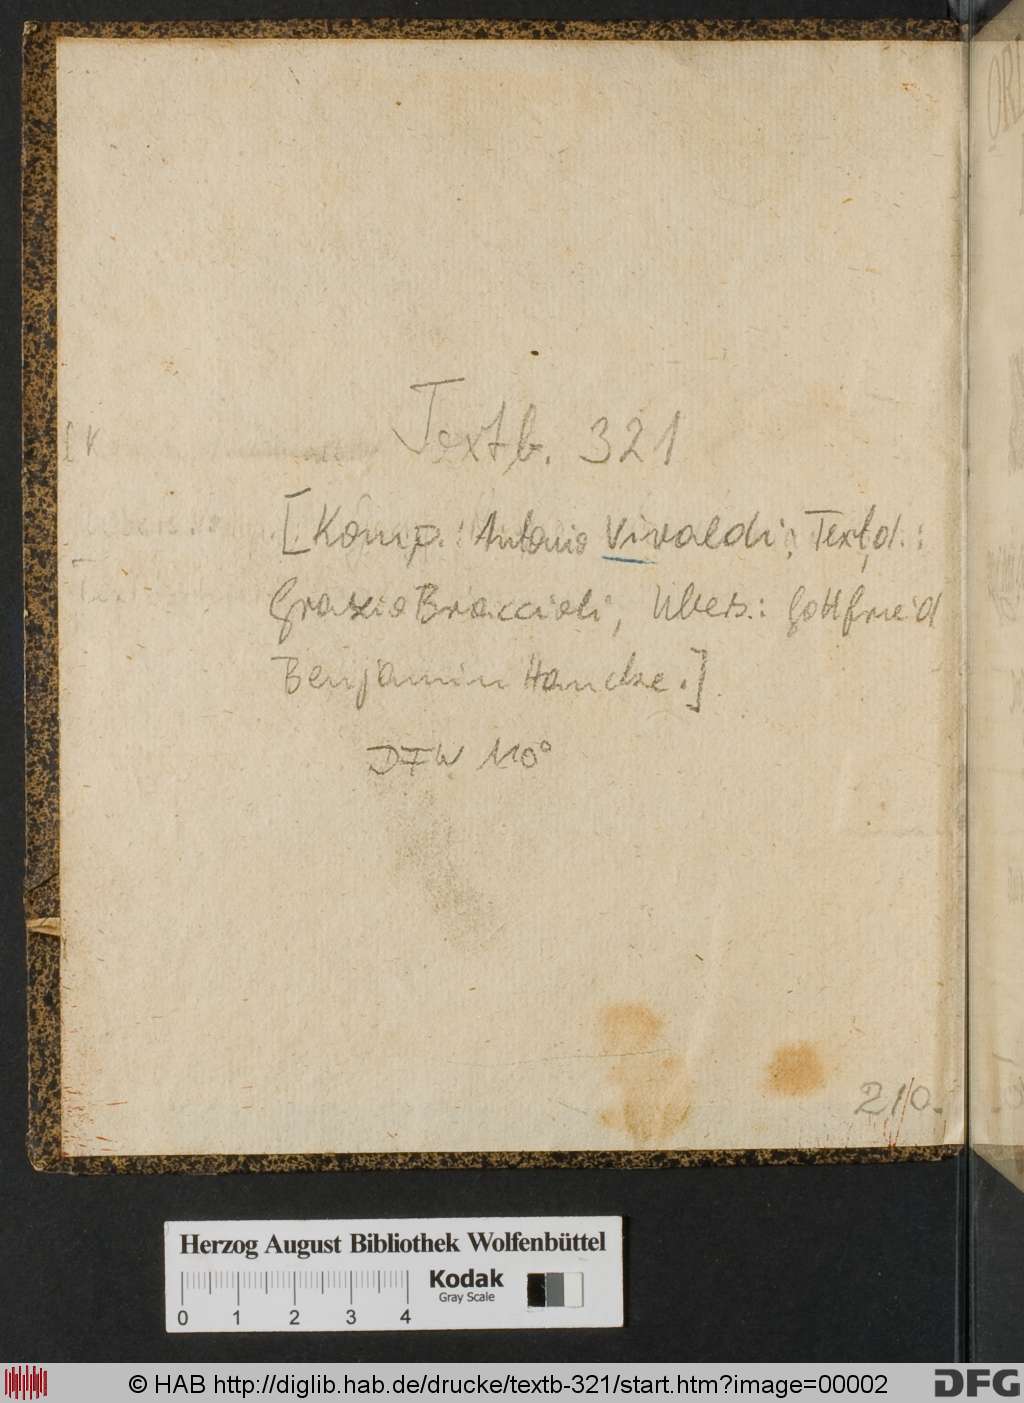 Textb. 321
[Komp.: Antonio Vivaldi; Textd.:
Grazio Braccioli, Übers.: Gottfried
Benjamin Hancke.]
DFW 110°
210.
ORL
Herzog August Bibliothek Wolfenbüttel
Kodak
Gray Scale
0 1 2 3 4
© HAB http://diglib.hab.de/drucke/textb-321/start.htm?image=00002
DFG